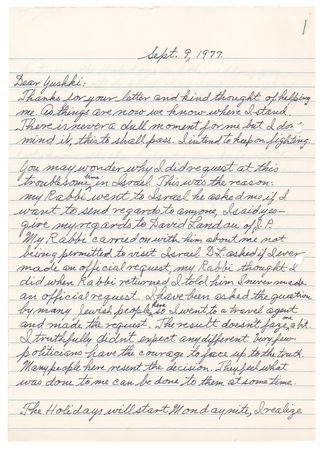 1
Sept. 9, 1977
Dear Yushki:
Thanks for your letter and kind thought of helping
me. As things are now we know where I stand.
There is never a dull moment for me but I don't
mind it, this to shall pass. I intend to keep on fighting.
You may wonder why I did request at this
troublesome time in Israel. This was the reason:
my Rabbi went to Israel he asked me if I
want to send regards to anyone, I said yes-
give my regards to David Landau of J.P.
My Rabbi carried on with him about me not
being permitted to visit Israel. D.L. asked if I ever
made an official request, my Rabbi thought I
did when Rabbi returned I told him I never made
an official request. I have been asked the question
by many Jewish people, here so I went to a travel agent
and made the request. The result doesn't faze me a bit.
I truthfully didn't expect any different. Very few
politicians have the courage to face up to the truth.
Many people here resent the decision. They feel what
was done to me can be done to them at some time.
The Holidays will start Monday nite, I realize